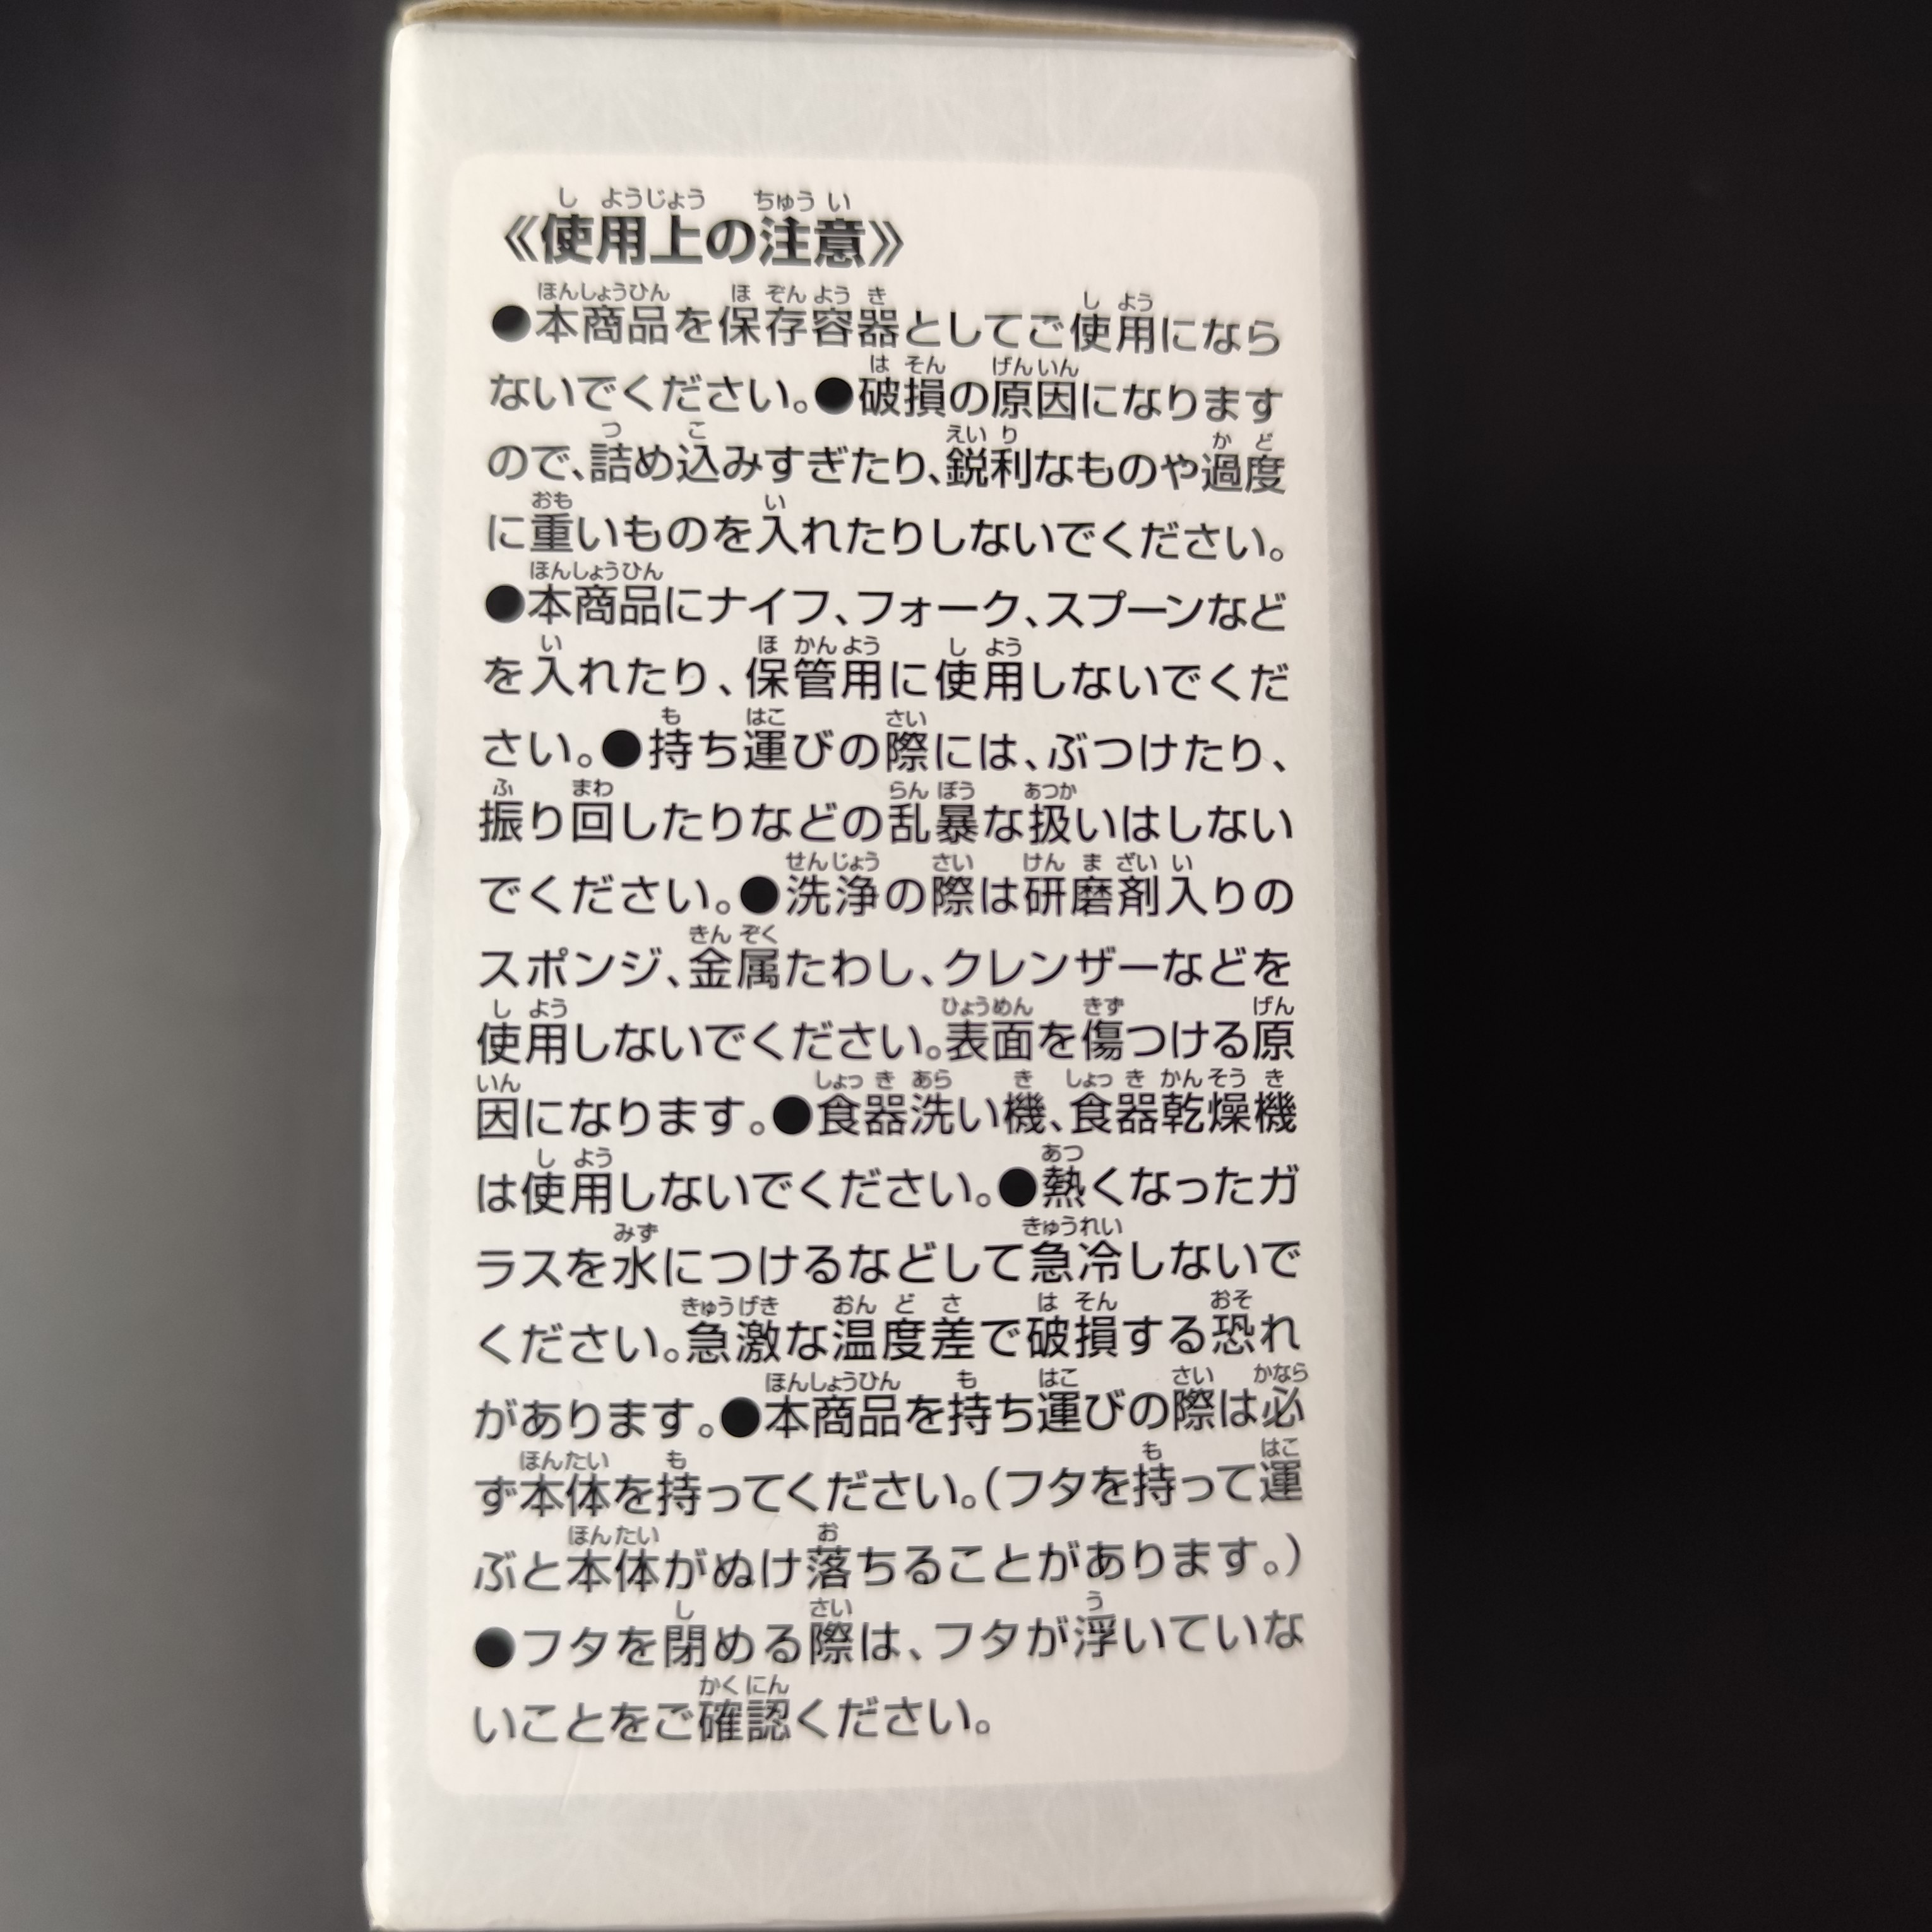 《使用上の注意》
●本商品を保存容器としてご使用になら
ないでください。●破損の原因になります
ので、詰め込みすぎたり、鋭利なものや過度
に重いものを入れたりしないでください。
●本商品にナイフ、フォーク、スプーンなど
を入れたり、保管用に使用しないでくだ
さい。●持ち運びの際には、ぶつけたり、
振り回したりなどの乱暴な扱いはしない
でください。●洗浄の際は研磨剤入りの
スポンジ、金属たわし、クレンザーなどを
使用しないでください。表面を傷つける原
因になります。●食器洗い機、食器乾燥機
は使用しないでください。●熱くなったガ
ラスを水につけるなどして急冷しないで
ください。急激な温度差で破損する恐れ
があります。●本商品を持ち運びの際は必
ず本体を持ってください。(フタを持って運
ぶと本体がぬけ落ちることがあります。)
●フタを閉める際は、フタが浮いていな
いことをご確認ください。